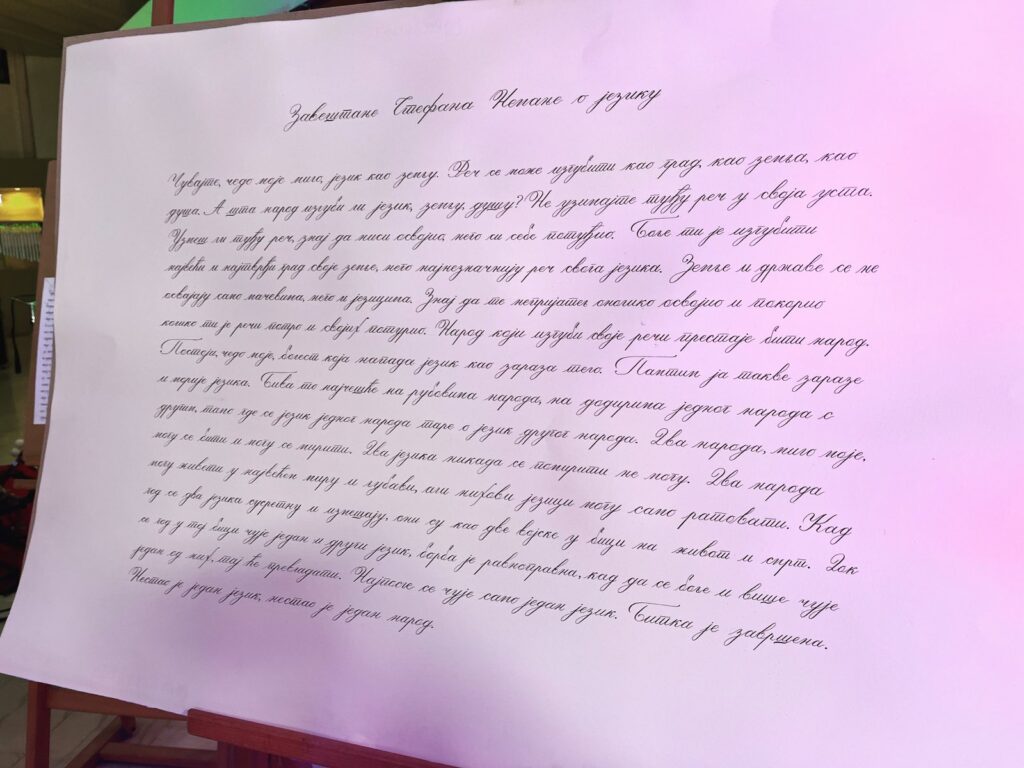 Завештање Стефана Немање о језику
Чувајте, чедо моје мило, језик као земљу. Реч се може изгубити као град, као земља, као
душа. А шта народ изгуби ли језик, земљу, душу? Не узимајте туђу реч у своја уста.
Узмеш ли туђу реч, знај да ниси освојио, него си себе потуђио. Боље ти је изгубити
највећи и најтврђи град своје земље, него најнезначнију реч свога језика. Земље и државе се не
освајају само мачевима, него и језицима. Знај да те непријатељ онолико освојио и покорио
колико ти је речи потро и својих потурио. Народ који изгуби своје речи престаје бити народ.
Постоји, чедо моје, болест која напада језик као зараза тело. Памтим ја такве заразе
и морије језика. Бива то најчешће на рубовима народа, на додирима једног народа с
другим, тамо где се језик једног народа таре о језик другог народа. Два народа, мило моје,
могу се бити и могу се мирити. Два језика никада се помирити не могу. Два народа
могу живети у највећем миру и љубави, али њихови језици могу само ратовати. Кад
год се два језика сусретну и измешају, они су као две војске у бици на живот и смрт. Док
се год у тој бици чује један и други језик, борба је равноправна, кад да се боље и више чује
један од њих, тај ће превладати. Најпосле се чује само један језик. Битка је завршена.
Нестао је један језик, нестао је један народ.